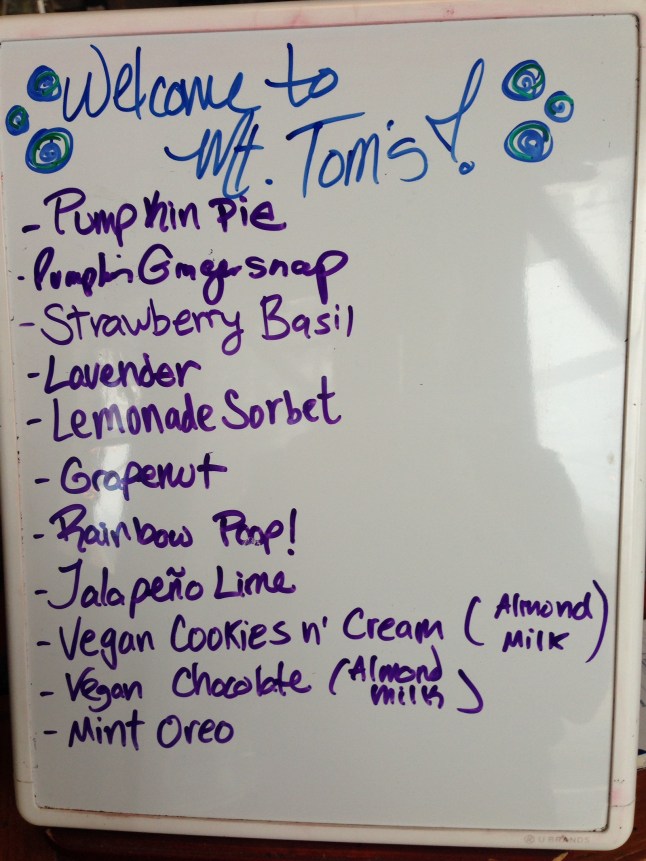 Welcome to
Mt. Tom's!
- Pumpkin Pie
- Pumpkin Gingersnap
- Strawberry Basil
- Lavender
- Lemonade Sorbet
- Grapenut
- Rainbow Poop!
- Jalapeño Lime
- Vegan Cookies n' Cream (Almond Milk)
- Vegan Chocolate (Almond Milk)
- Mint Oreo
U BRANDS